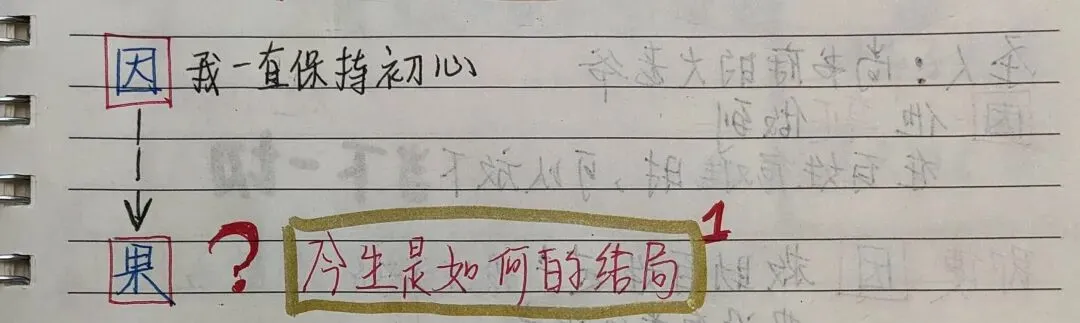 因 我一直保持初心
果 ? 今生是如何的结局 1